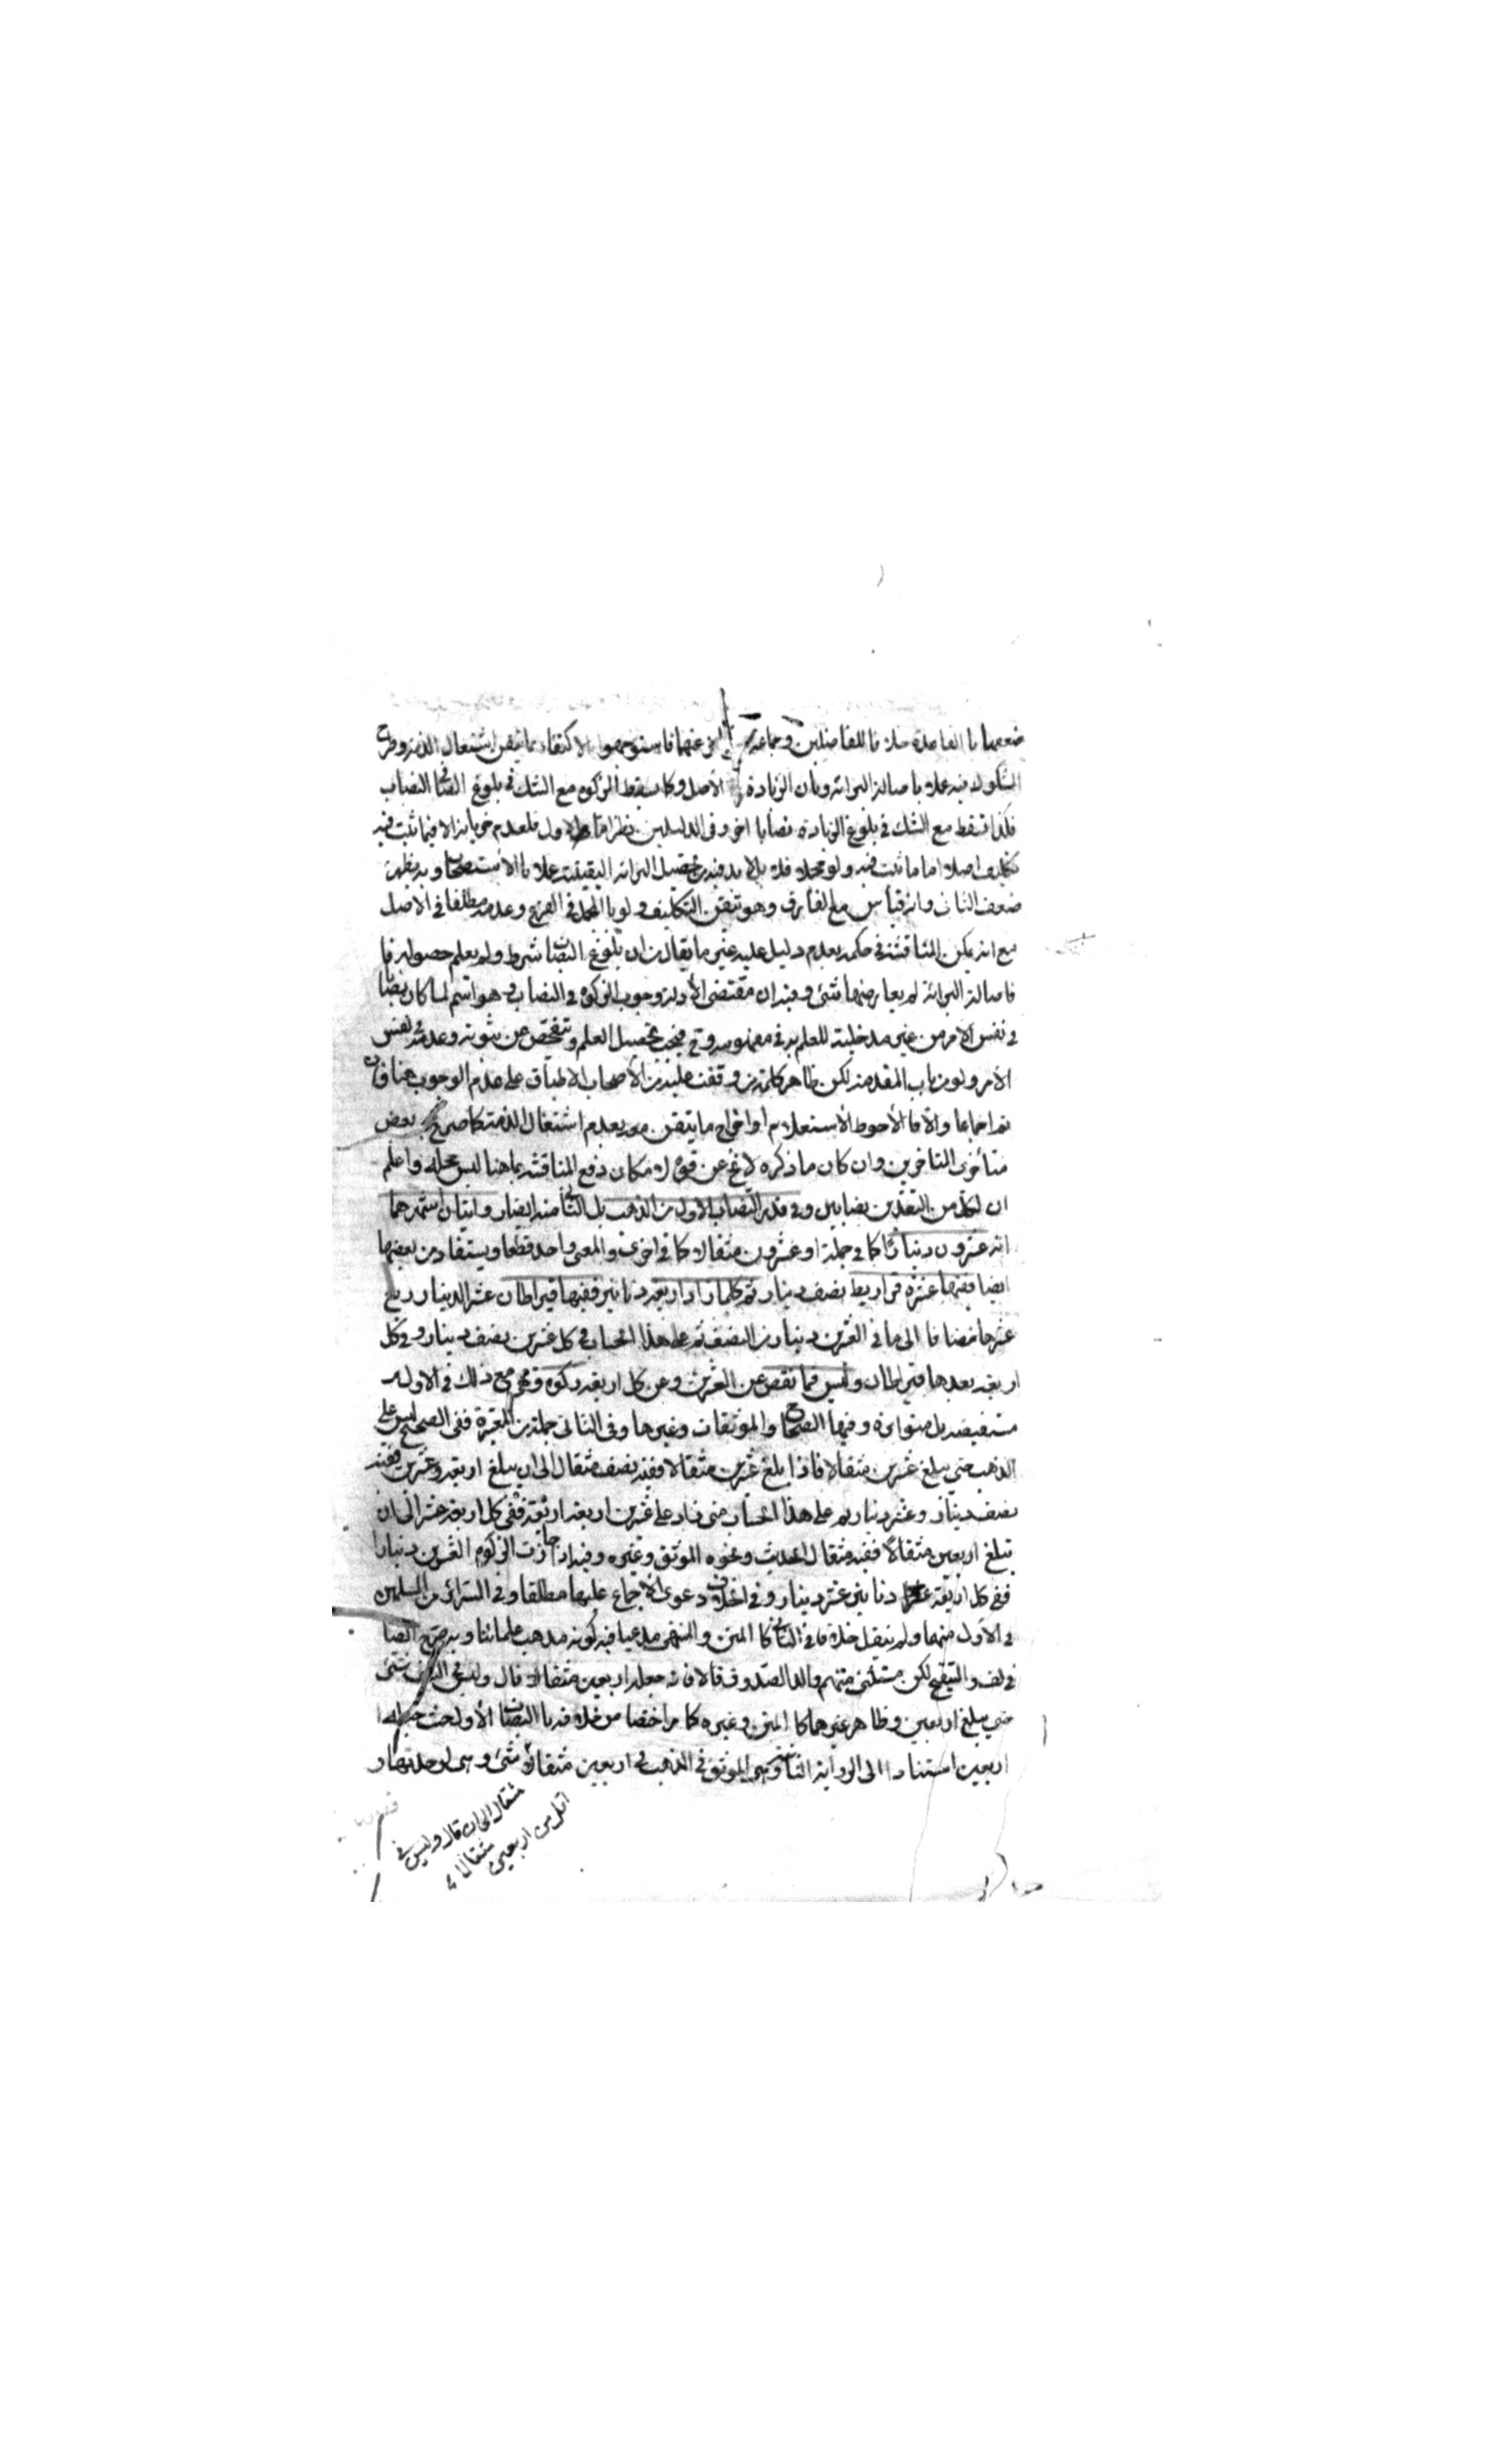 ضعفها بالقاعدة خلافا للفاضلين وجماعة فاستوجهوا الاكتفاء بما تيقن اشتغال الذمة وطرح
المشكوك فيه عملا باصالة البرائة وبان الزيادة كالاصل وكما يسقط الزكوة مع الشك في بلوغ الصافي النصاب
فكذا تسقط مع الشك في بلوغ الزيادة نصابا اخر وفي الدليلين نظر اما الاول فلعدم جريانه الا فيما ثبت فيه
تكليف اصلا اما ما ثبت فيه ولو مجملا فلا بل لا بد فيه من تحصيل البرائة اليقينية عملا بالاستصحاب وبه يظهر
ضعف الثاني وانه قياس مع الفارق وهو تيقن التكليف ولو بالمجمل في الفرع وعدمه مطلقا في الاصل
مع انه يمكن المناقشة في حكمه بعدم دليل عليه غير ما يقال من ان بلوغ النصاب شرط ولم يعلم حصوله فا
فاصالة البرائة لم يعارضها شئ وفيه ان مقتضى الادلة وجوب الزكوة في النصاب وهو اسم لما كان نصابا
في نفس الامر من غير مدخلية للعلم به في مفهومه وح فيجب تحصيل العلم وتفحص عن ثبوته وعدمه في نفس
الامر ولو من باب المقدمة لكن ظاهر كلمة من وقفت عليه من الاصحاب الاطباق على عدم الوجوب هنا فان
تم اجماعا والا فالاحوط الاستعلام او اخراج ما يتيقن معه بعدم اشتغال الذمة كما صرح به بعض
متأخري المتاخرين وان كان ما ذكره لا يخ عن قوة لامكان دفع المناقشة بما هنا ليس محله واعلم
ان لكل من النقدين نصابين وفي قدر النصاب الاول من الذهب بل الثاني منه ايضا روايتان اشهرهما
انه عشرون دينارا كما في جملة او عشرون مثقالا كما في اخرى والمعنى واحد قطعا ويستفاد من بعضها
ايضا ففيها عشرة قراريط نصف دينار ثم كلما زاد اربعة دنانير ففيها قيراطان عشر الدينار ربع
عشرها مضافا الى ما في العشرين دينار من النصف ثم على هذا الحساب في كل عشرين نصف دينار وفي كل
اربعة بعدها قيراطان وليس فيما نقص عن العشرين وعن كل اربعة زكوة وهي مع ذلك في الاول
مستفيضة بل متواترة وفيها الصحاح والموثقات وغيرها وفي الثاني جملة من المعتبرة ففي الصحيح ليس على
الذهب حتى يبلغ عشرين مثقالا فاذا بلغ عشرين مثقالا ففيه نصف مثقال الى ان يبلغ اربعة وعشرين ففيه
نصف دينار وعشر دينار ثم على هذا الحساب متى زاد على عشرين اربعة اربعة ففي كل اربعة عشر الى ان
تبلغ اربعين مثقالا ففيه مثقال الحديث ونحوه الموثق وغيره وفيه اذا جازت الزكوة العشرين دينارا
ففي كل اربعة دنانير عشر دينار وفي الخلاف دعوى الاجماع عليها مطلقا وفي السرائر من المسلمين
في الاول منهما ولم ينقل خلافا في الثاني كما المتن والمنتهى مدعيا فيه كونه مذهب علمائنا وبه صرح ايضا
في لف والتنقيح لكن مستثنى منهم والد الصدوق قالا فانه جعله اربعين مثقالا قال وليس في النيف شئ
حتى يبلغ اربعين وظاهر غيرهما كالمتن وغيره كما مر اختصاص خلافه بالنصاب الاول حيث جعله
اربعين استنادا الى الرواية الثانية وهي الموثق في الذهب في اربعين مثقالا شئ وهي لوحدتها و
مثقال الى ان قال وليس في
اقل من اربعين
مثقالا شئ